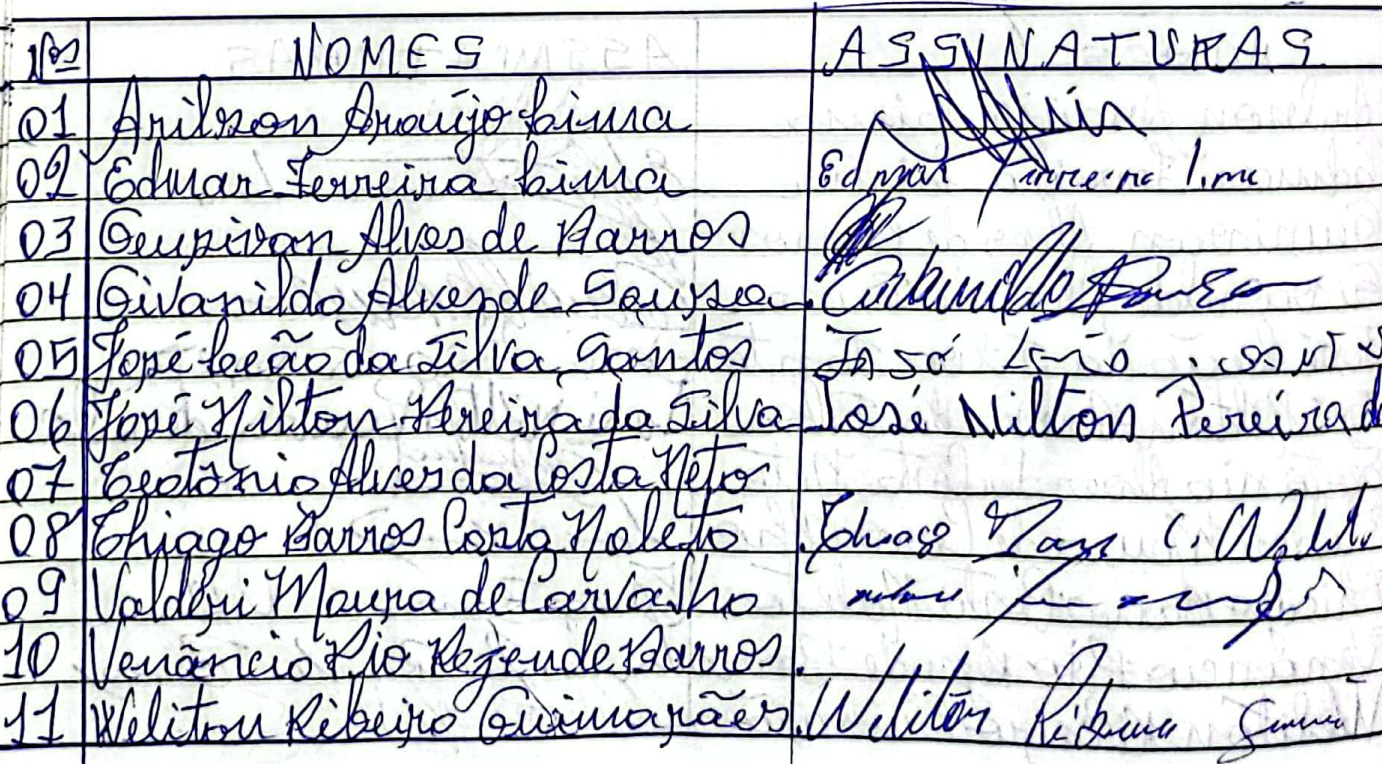 Nos NOMES ASSINATURAS
01 Arilson Araújo Lima
02 Edmar Ferreira Lima Edmar Ferreira Lima
03 Alves de Barros
04 Givanildo Alves de Sousa
05 José Leão da Silva Santos José Leão
06 José Nilton Pereira da Silva José Nilton Pereira d
07 Teotônio Alves da Costa Neto
08 Thiago Barros Costa Noleto Thiago
09 Valderi Moura de Carvalho
10 Venâncio Rio Rezende Barros
11 Weliton Ribeiro Guimarães Weliton Ribeiro